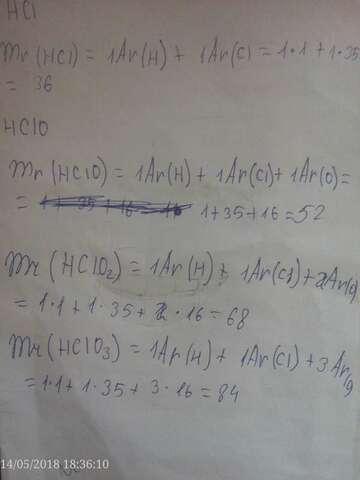 HCl
Mr (HCl) = 1Ar(H) + 1Ar(Cl = 1·1 + 1·35
= 36
HClO
Mr (HClO) = 1Ar(H) + 1Ar(Cl) + 1Ar(O) =
= 1+35+16=52
Mr (HClO₂) = 1Ar(H) + 1Ar(Cl) + 2Ar(O)
= 1·1 + 1·35 + 2·16 = 68
Mr (HClO₃) = 1Ar(H) + 1Ar(Cl) + 3Ar(O)
= 1·1 + 1·35 + 3·16 = 84
14/05/2018 18:36:10